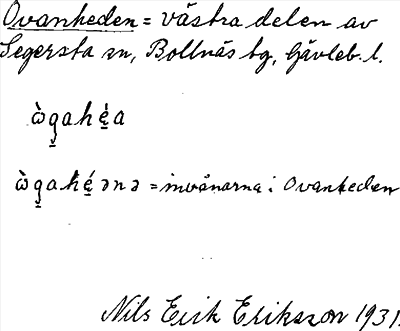 Ovanheden = västra delen av
Segersta sn, Bollnäs tg, Gävleb. l.
ɷ̀g̱ahé̱a
ɷ̀g̱ahé̱ənə = invånarna i Ovanheden
Nils Erik Eriksson 1931.